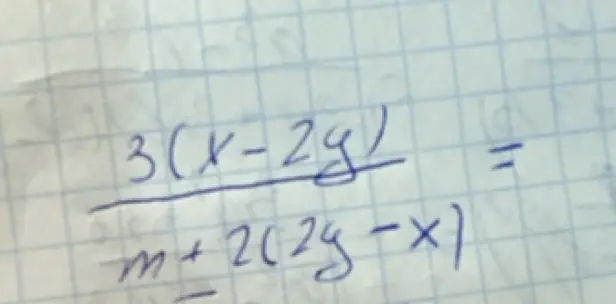 3(x-2y) =
m ± 2(2y-x)